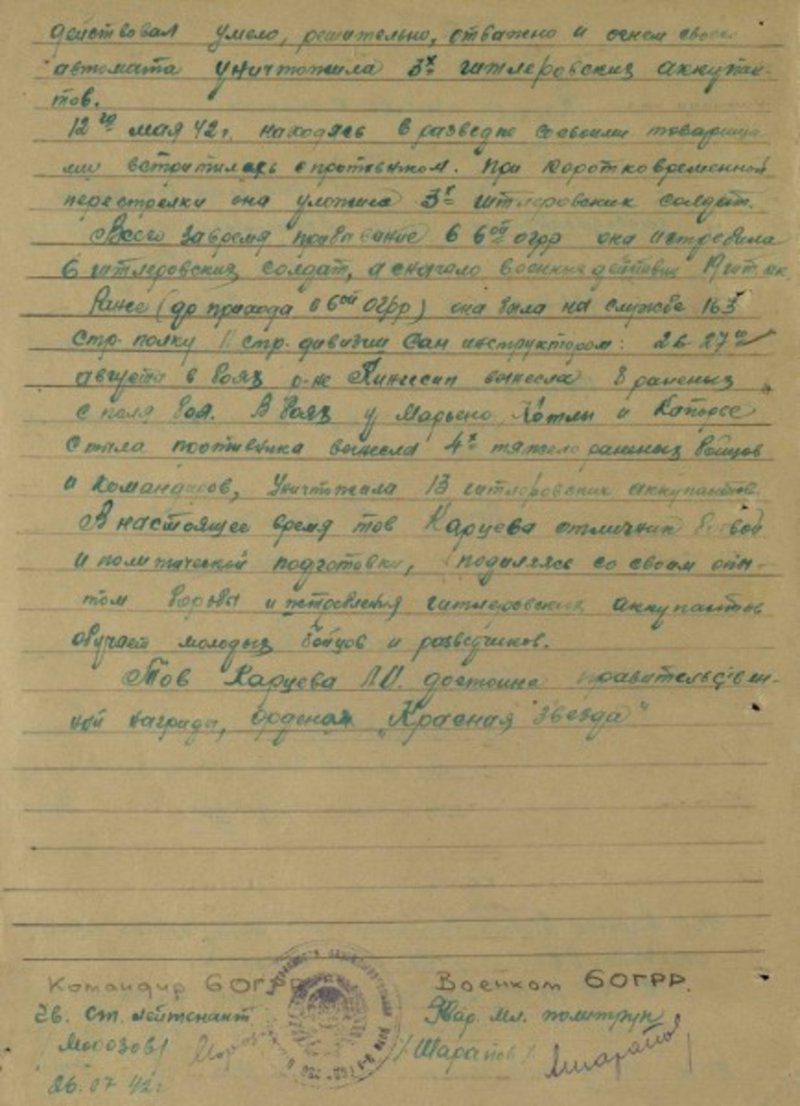 действовал умело, решительно, отважено и огнем своего
автомата уничтожила 3х гитлеровских аккупан-
тов.
12го мая 42г. находясь в разведке со своими товарища
ми встретилась с противником. При коротковременной
перестрелки она уложила 3х гитлеровских солдат.
Всего за время прибывание в 6ой огрр она истребила
6 гитлеровских солдат, а сначало военных действий 19 гит.
Ранее (до прихода в 6ой огрр) она была на службе 163
стр. полку 11 стр. дивизии Сан инструктором: 26-27го
августа в боях р-не Кингисеп вынесла 8 раненых
с поля боя. В боях у Марьено, Котлы и Капорье
с тыла противника вынесла 4х тяжело раненых бойцов
и командиров, уничтожила 13 гитлеровских аккупантов.
В настоящее время тов Карцева отличник боевой
и политической подготовки, подиляясь со своим опы-
том борьбы и гитлеровских аккупантов
обучает молодых бойцов и разведчиков.
Тов Карцева достойна правительствен-
ной награды, ордена „Красная Звезда"
Командир 6ОГРР
Гв. Ст. лейтенант
/Морозов/
26.07.42г.
Военком 6ОГРР.
Мл. политрук
/Шарапов/